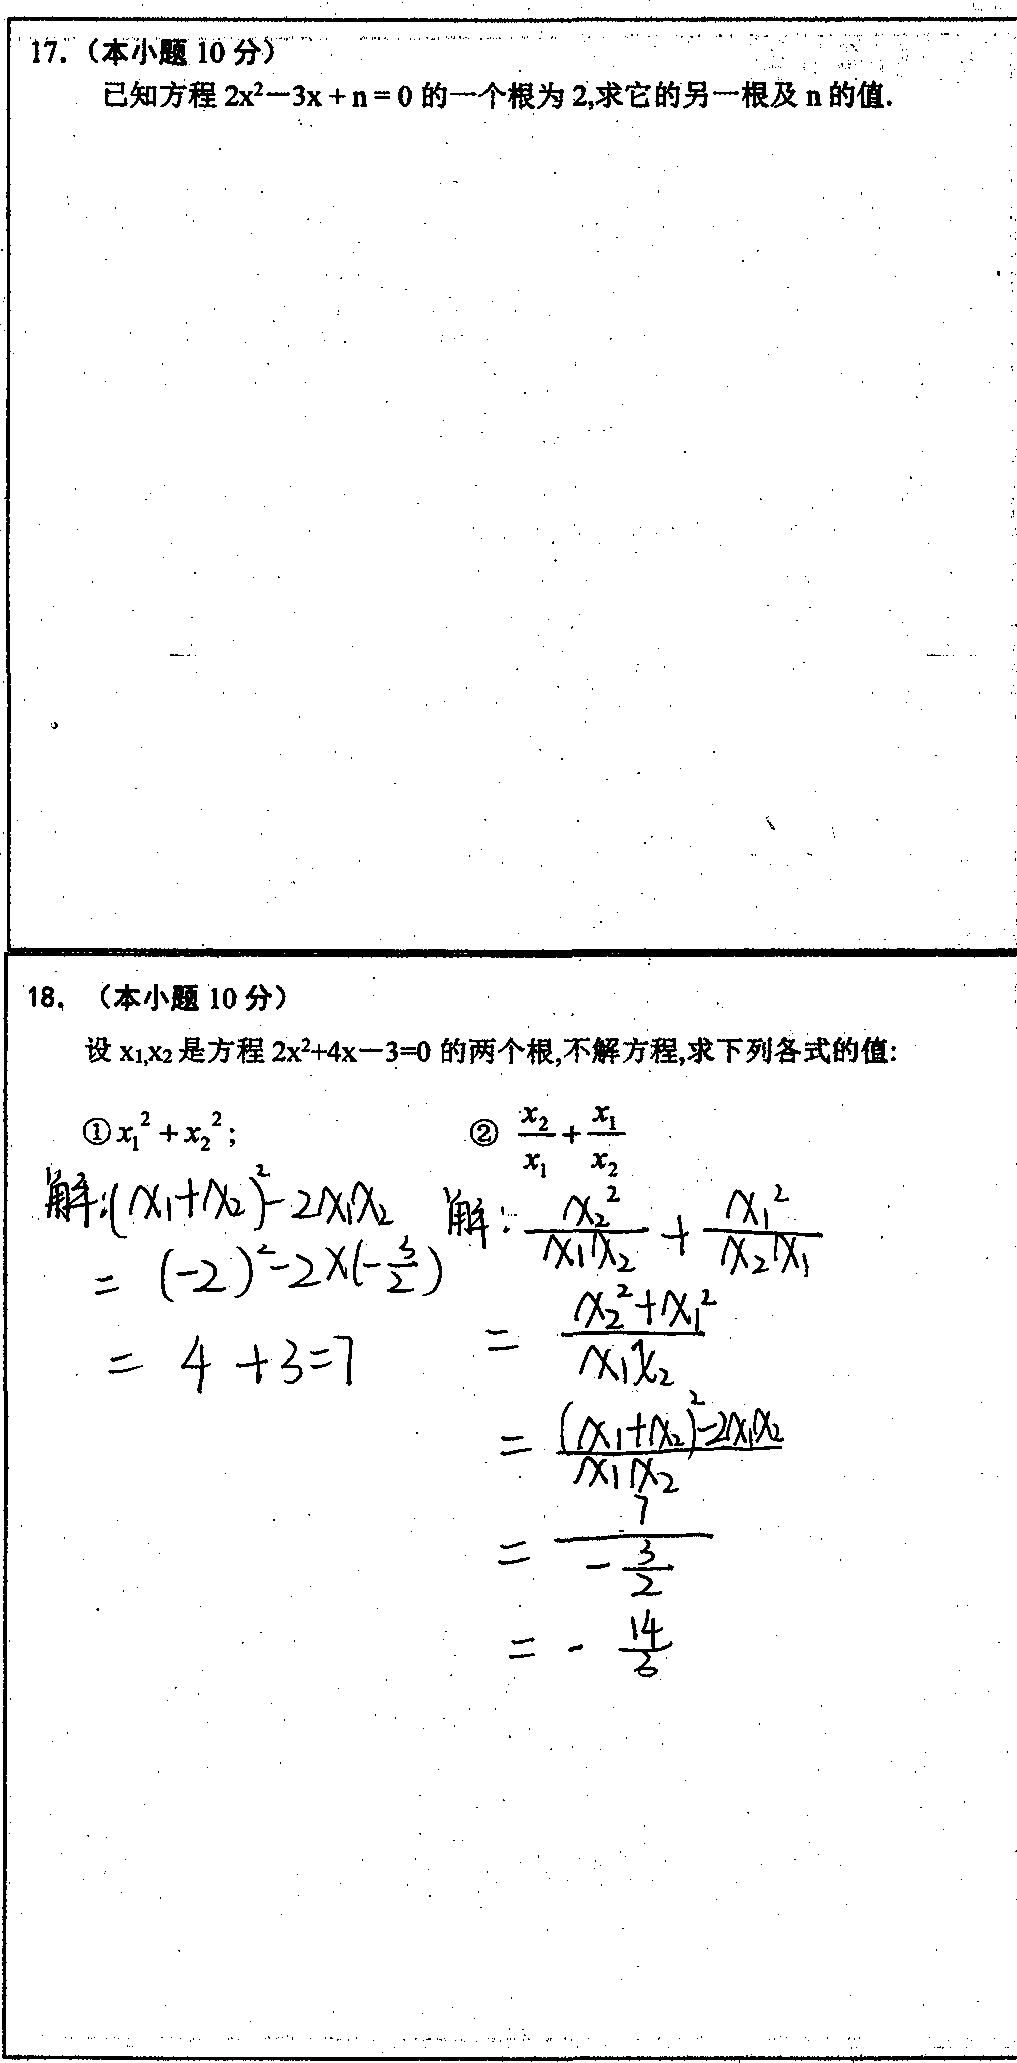 17.（本小题 10 分）
已知方程 2x²－3x + n = 0 的一个根为 2,求它的另一根及 n 的值.
18.（本小题 10 分）
设 x₁,x₂ 是方程 2x²+4x－3=0 的两个根,不解方程,求下列各式的值:
① x₁² + x₂² ;
② x₂/x₁ + x₁/x₂
解:(x₁+x₂)²-2x₁x₂
= (-2)²-2×(-3/2)
= 4+3=7
解: x₂²/x₁x₂ + x₁²/x₂x₁
= (x₂²+x₁²)/x₁x₂
= ((x₁+x₂)²-2x₁x₂)/x₁x₂
= 7/(-3/2)
= - 14/3